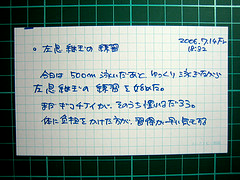 2006.7.14 Fri
18:32
。左息継ぎの練習
今日は500m泳いだあと、ゆっくり泳ぎながら
左息継ぎの練習を始めた。
まだギコチナイが、そのうち慣れるだろう。
体に負担をかけた方が、習得が早い気がする